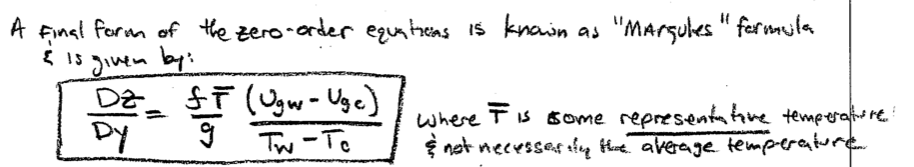 A Final form of the zero-order equations is known as "Margules" formula
& is given by:
Dz/Dy = f T̄/g (Ugw - Ugc)/(Tw - Tc)
where T̄ is some representative temperature
& not necessarily the average temperature